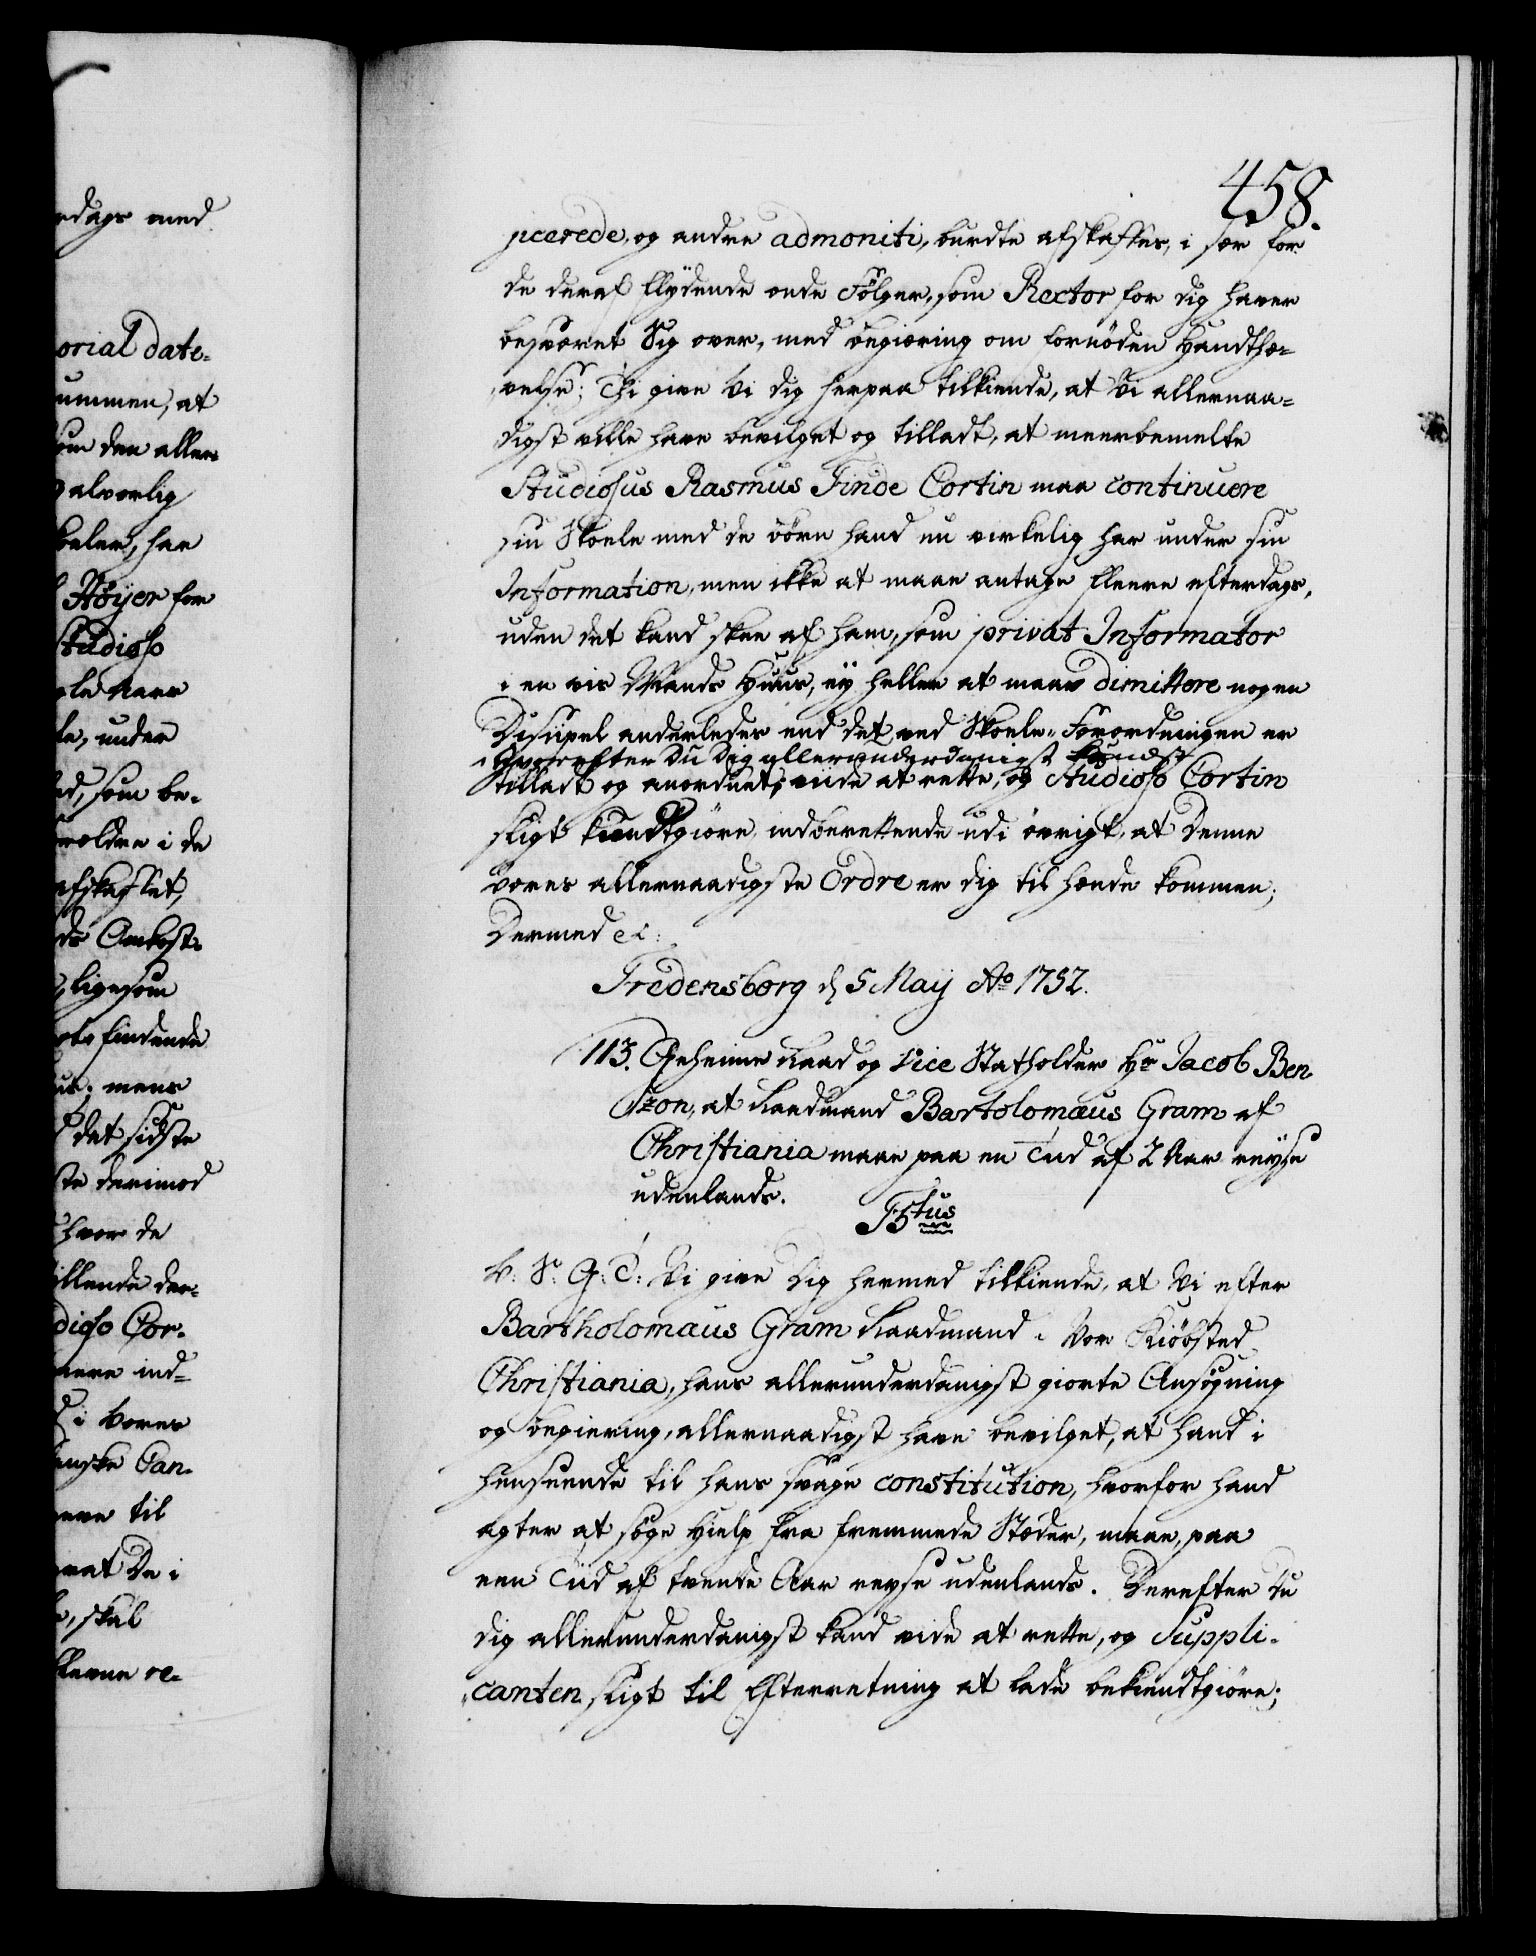 rdags med
orial date-
ummen, at
om den aller-
alvorlig
koler, har
Höijer for
Studioso
gle Aars
le, under
ed, som be-
holdes i de
afskaffet,
ds Omkost-
ligesom
findende
mens
det sidste
ste derimod
hvor de
illende der-
dioso Cor-
mere ind-
i vores
anske Can-
til
rat De i
, skal
re-
458.
pcerede, og andre admoniti, burdte afskaffes, i sær for
de deraf flÿdende onde Følger, som Rector for dig haver
besværet Sig over, med begiæring om fornöden Handthæ-
velse; Thi give Vi dig herpaa tilkiende, at Vi allernaa-
digst ville have bevilget og tilladt, at meerbemelte
Studiosus Rasmus Finde Cortin maa continuere
sin Skoele med de börn hand nu virkelig har under sin
Information, men ikke at maae antage fleere efterdags,
uden det kand skee af ham, som privat Informator
i en vis Mands Huus, ey heller at maae dimittere nogen
Discipel anderledes end det ved Skoele-Forordningen er
Hvorefter Du Dig allerunderdanigst kand
tilladt og anordnet, vide at rette, og Studioso Cortin
sligt kundtgiöre, indberettende udi övrigt, at Denne
vores allernaadigste Ordre er dig til hænde kommen;
Dermed etc:
Fredensborg d 5 Maij Ao 1752.
113. Geheime Raad og Vice Statholder Hr Jacob Ben-
Szon, at Raadmand Bartolomæus Gram af
Christiania maae paa en Tiid af 2 Aar reyse
udenlands.
F5tus
V: S: G: T: Vi give Dig hermed tilkiende, at Vi efter
Bartholomæus Gram Raadmand i Vor Kiöbsted
Christiania, hans allerunderdanigst giorte Ansögning
og begiering, allernaadigst have bevilget, at hand i
henseende til hans svage constitution, hvorfor hand
agter at söge Hielp fra fremmede Stæder, maae, paa
een Tiid af tvende Aar reyse udenlands. Derefter Du
dig allerunderdanigst kand vide at rette, og Suppli-
canten sligt til Efterretning at lade bekiendtgiöre;